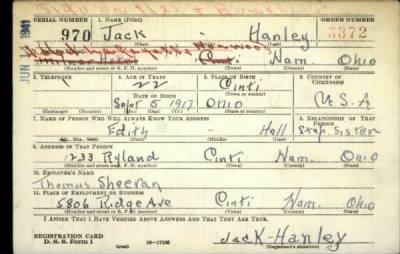 SERIAL NUMBER 1. NAME (Print) ORDER NUMBER
970 Jack - Hanley 3372
(First) (Middle) (Last)
Cinti Ham. Ohio
(Number and street or R. F. D. number) (Town) (County) (State)
3. TELEPHONE 4. AGE IN YEARS 5. PLACE OF BIRTH 6. COUNTRY OF CITIZENSHIP
22 Cinti
DATE OF BIRTH (Town or county)
Sept 5 1917 Ohio U.S.A
(Exchange) (Number) (Mo.) (Day) (Yr.) (State or country)
7. NAME OF PERSON WHO WILL ALWAYS KNOW YOUR ADDRESS 8. RELATIONSHIP OF THAT PERSON
Edith - Hall Step Sister
(Mr., Mrs., Miss) (First) (Middle) (Last)
9. ADDRESS OF THAT PERSON
233 Ryland Cinti Ham. Ohio
(Number and street or R. F. D. number) (Town) (County) (State)
10. EMPLOYER'S NAME
Thomas Sheeran
11. PLACE OF EMPLOYMENT OR BUSINESS
5806 Ridge Ave Cinti Ham. Ohio
(Number and street or R. F. D. number) (Town) (County) (State)
I AFFIRM THAT I HAVE VERIFIED ABOVE ANSWERS AND THAT THEY ARE TRUE.
REGISTRATION CARD
D. S. S. Form 1 (over) 16-17105 Jack-Hanley
(Registrant's signature)